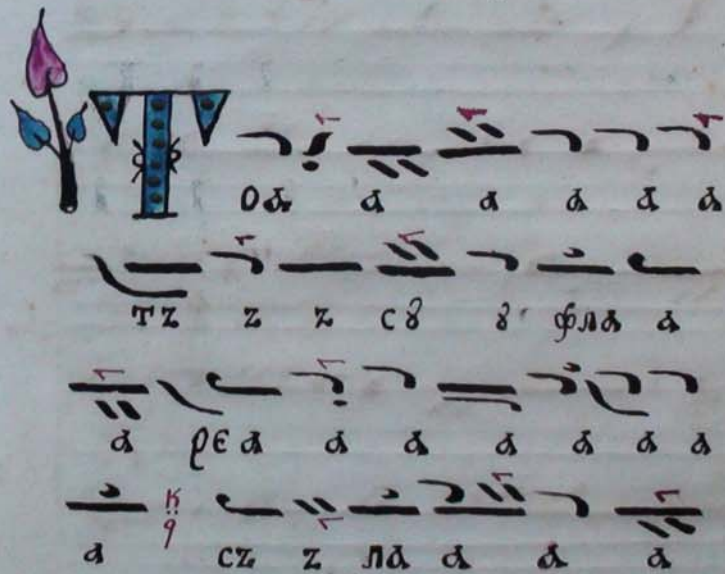 Т оа а а а а а
тъ ъ ъ сꙋ ꙋ фла а
а рє а а а а а а а
а съ ъ ла а а а